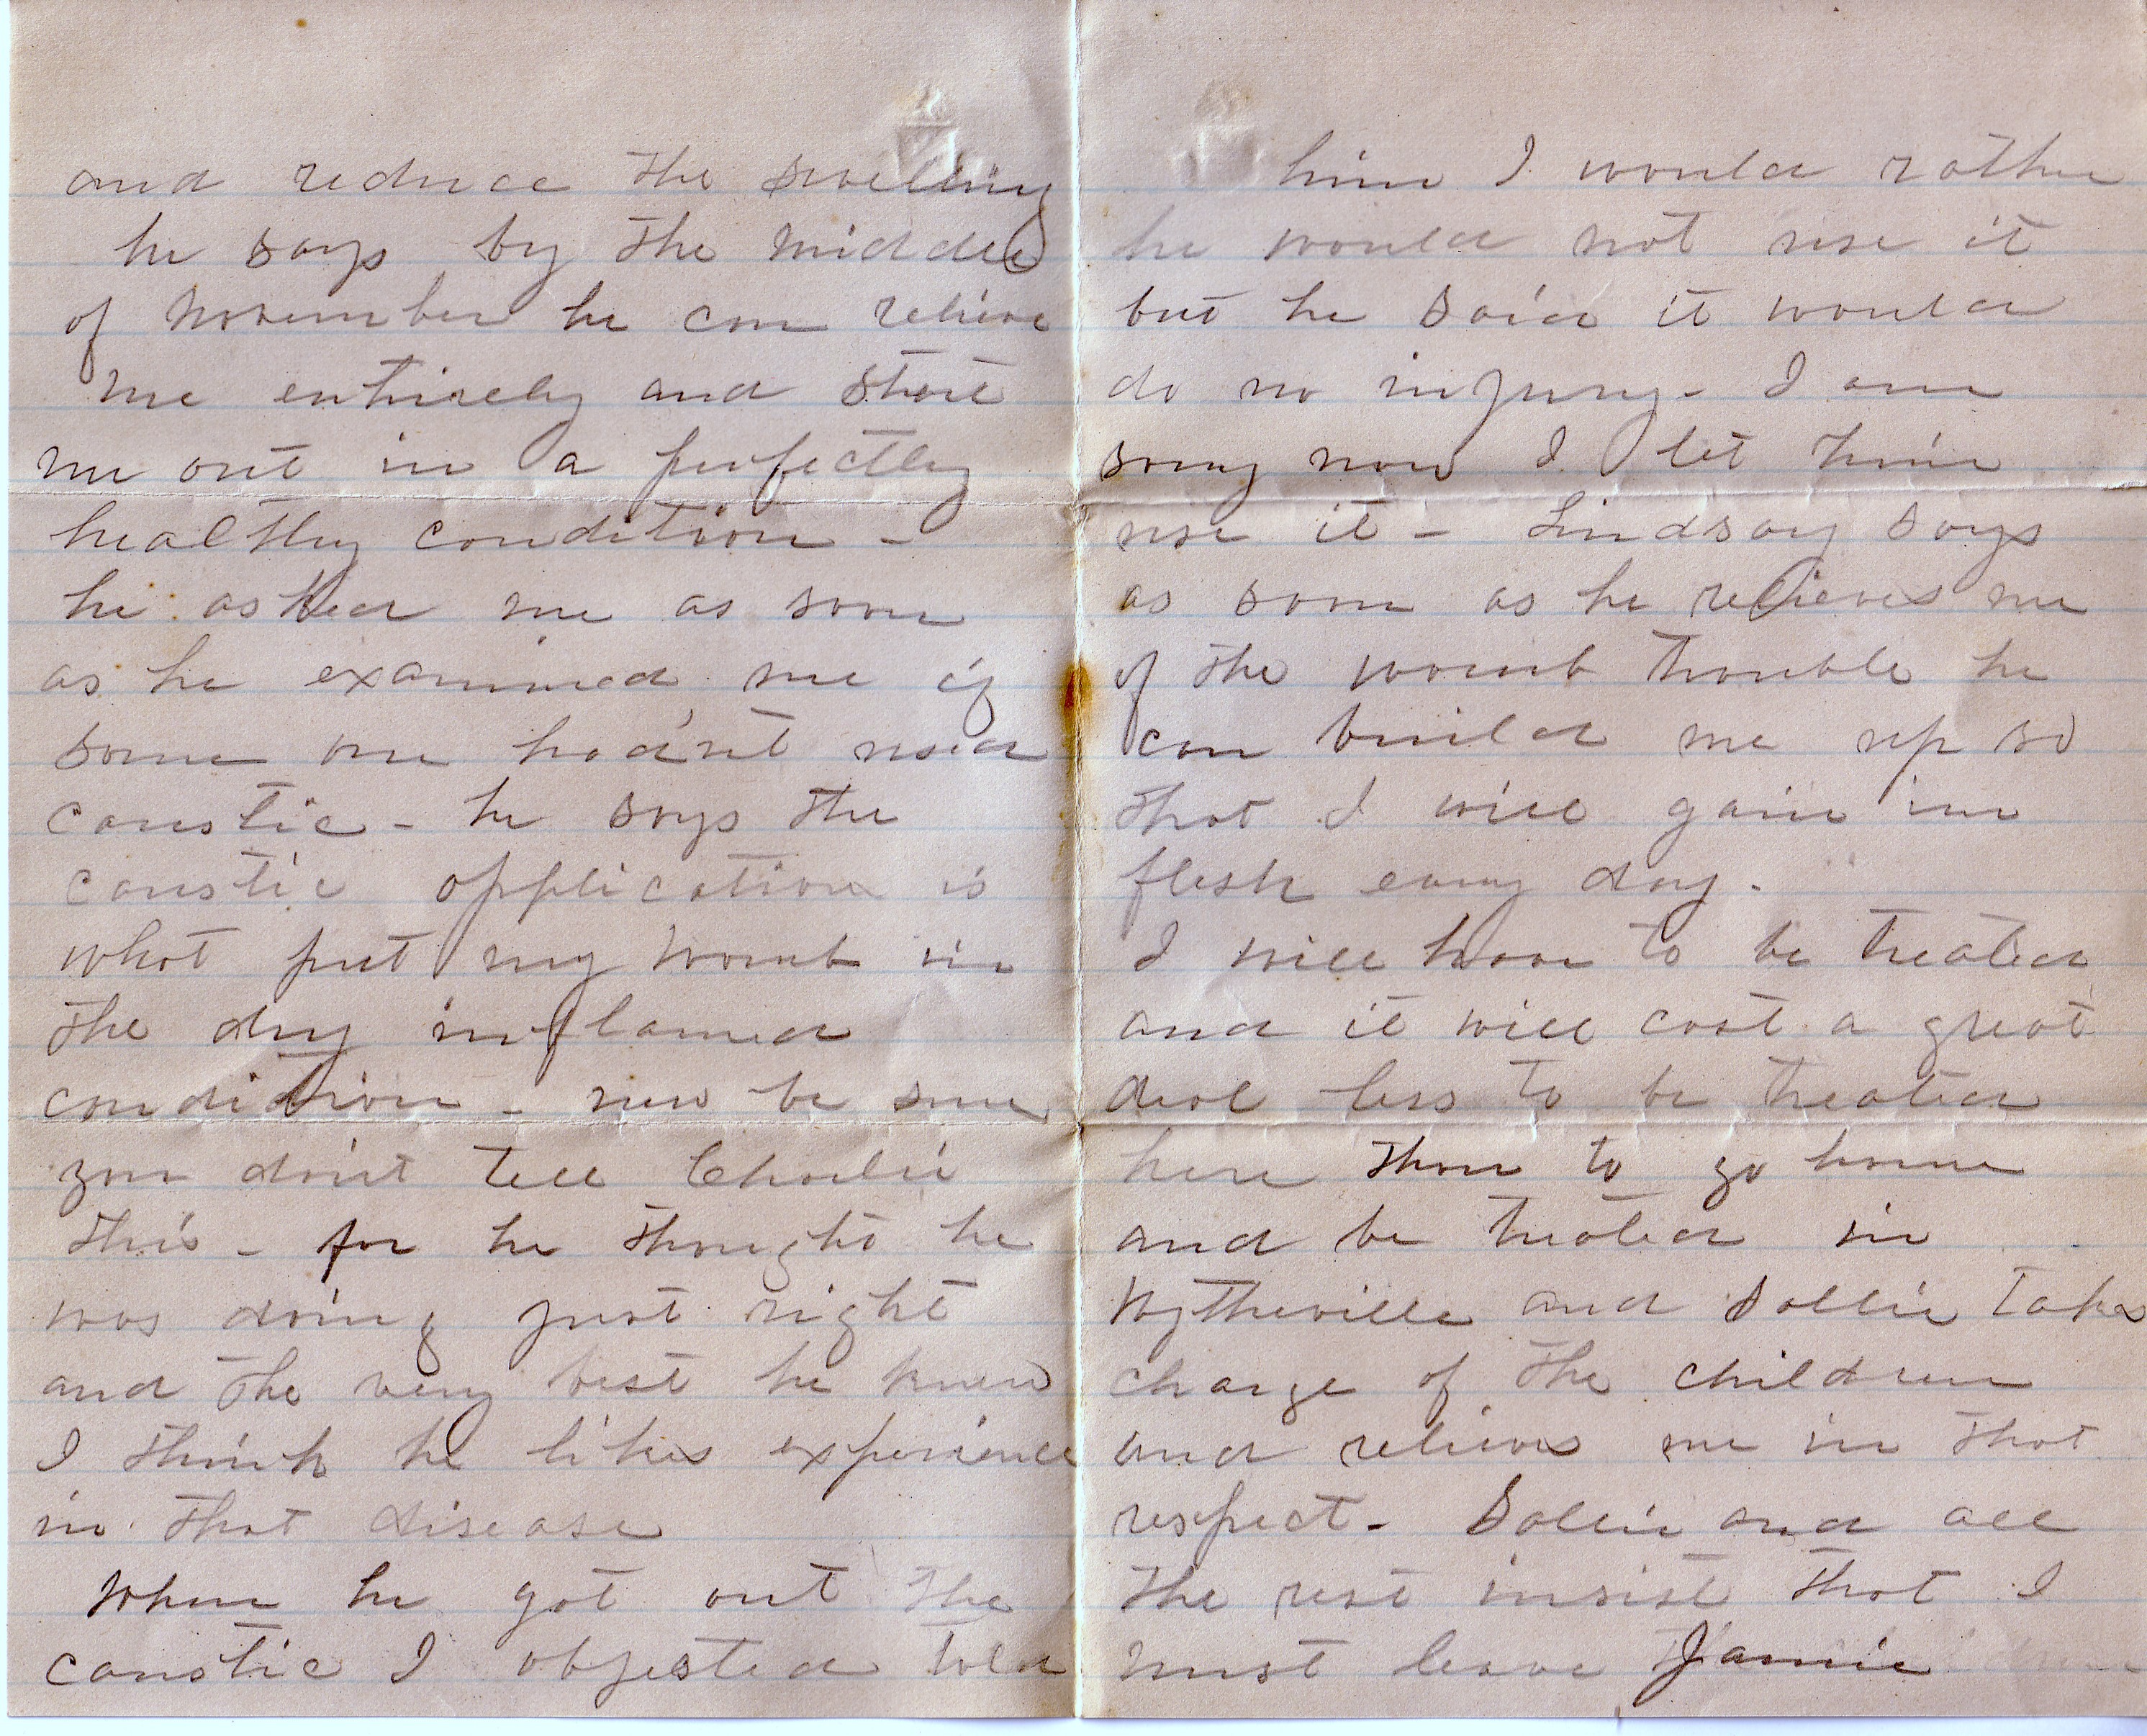 and reduce the swelling
he says by the middle
of November he can relieve
me entirely and start
me out in a perfectly
healthy condition -
he asked me as soon
as he examined me if
some one had'nt used
caustic - he says the
caustic application is
what put my womb in
the dry inflamed
condition - now be sure
you don't tell Charlie
this - for he thought he
was doing just right
and the very best he knew
I think he likes experience
in that disease
When he got out the
caustic I objected told
him I would rather
he would not use it
but he said it would
do no injury - I am
sorry now I let him
use it - Lindsay says
as soon as he relieves me
of the womb trouble he
can build me up so
that I will gain in
flesh every day.
I will have to be treated
and it will cost a great
deal less to be treated
here than to go home
and be treated in
Wytheville and Sallie takes
charge of the children
and relieves me in that
respect - Sallie and all
the rest insist that I
must leave Jamie